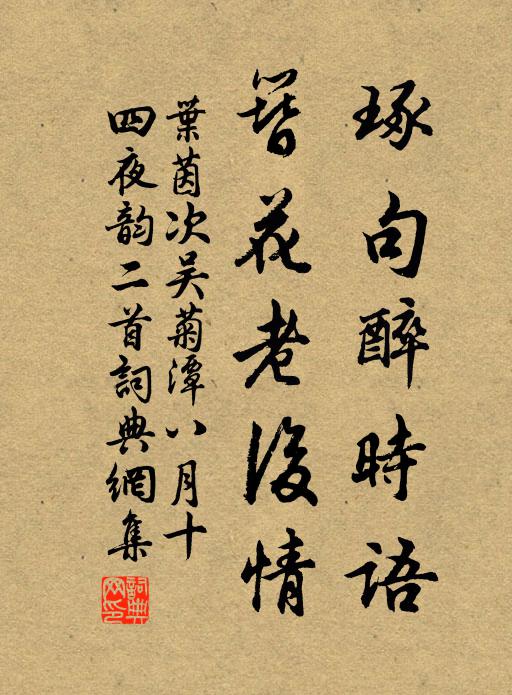 琢句醉時語
簪花老後情
葉茵次吳菊潭八月十
四夜韵二首詞典網集
詞典網印